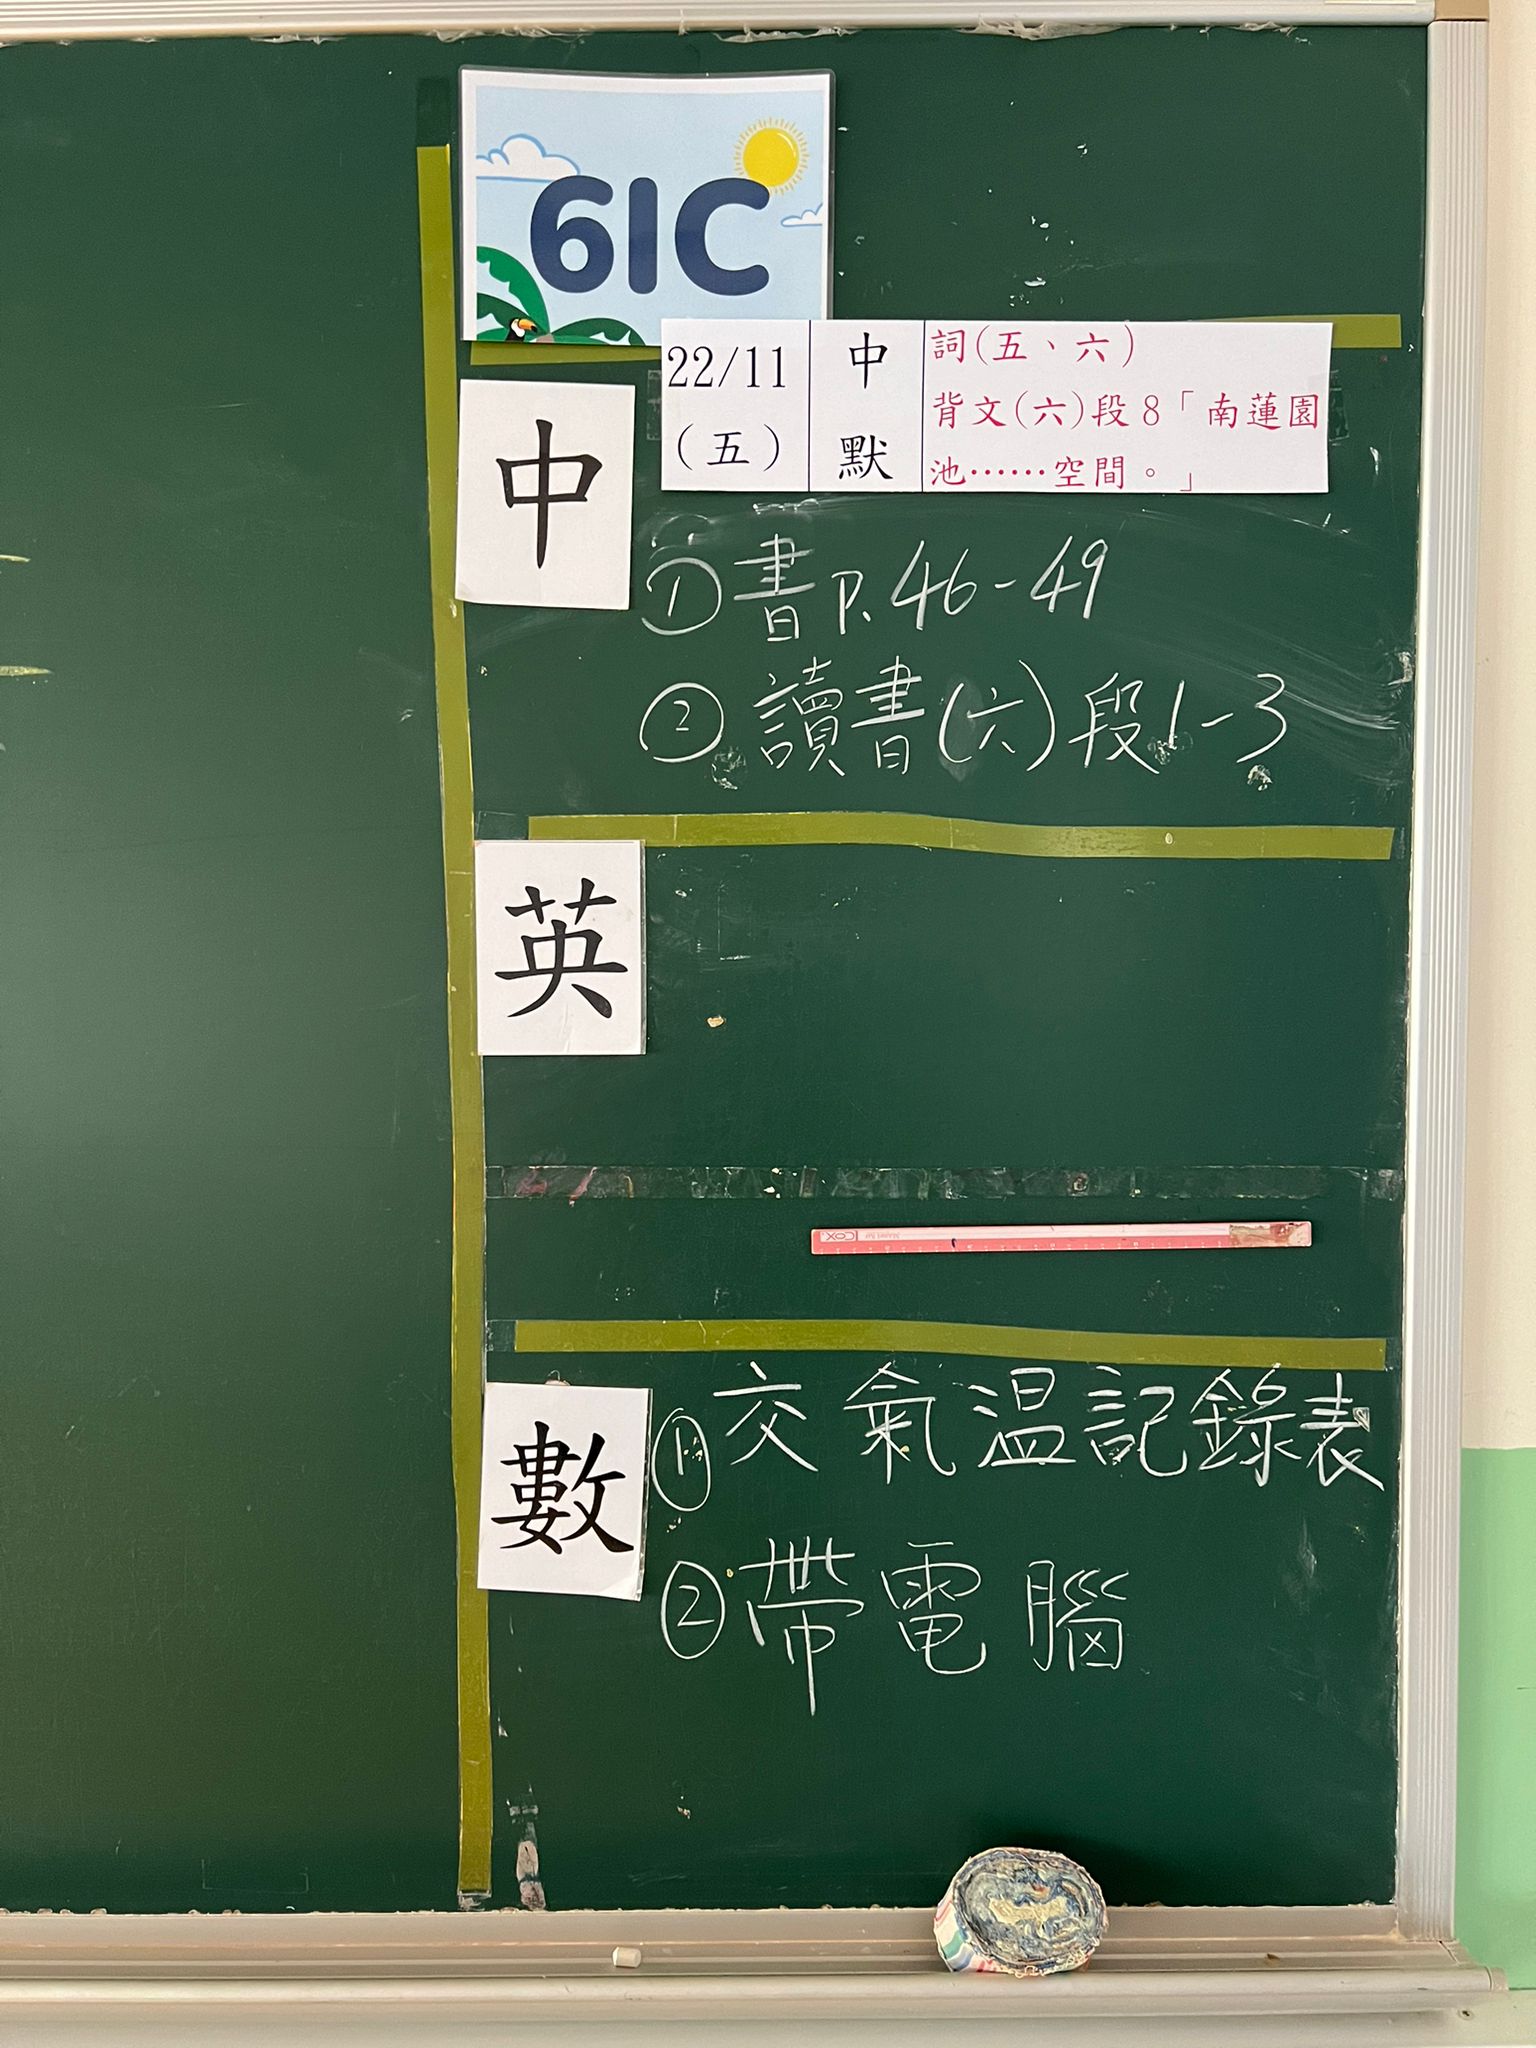 61C
22/11
(五)
中
默
詞(五、六)
背文(六)段8「南蓮園
池……空間。」
中
①書P.46-49
②讀書(六)段1-3
英
COX
數
①交氣温記錄表
②帶電腦